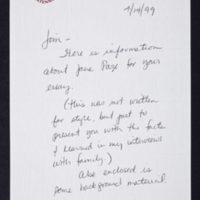 9/14/99
Jom -
Here is information
about Jane Page for your
essay.
(This was not written
for style, but just to
present you with the facts
I learned in my interviews
with family.)
Also enclosed is
some background material.